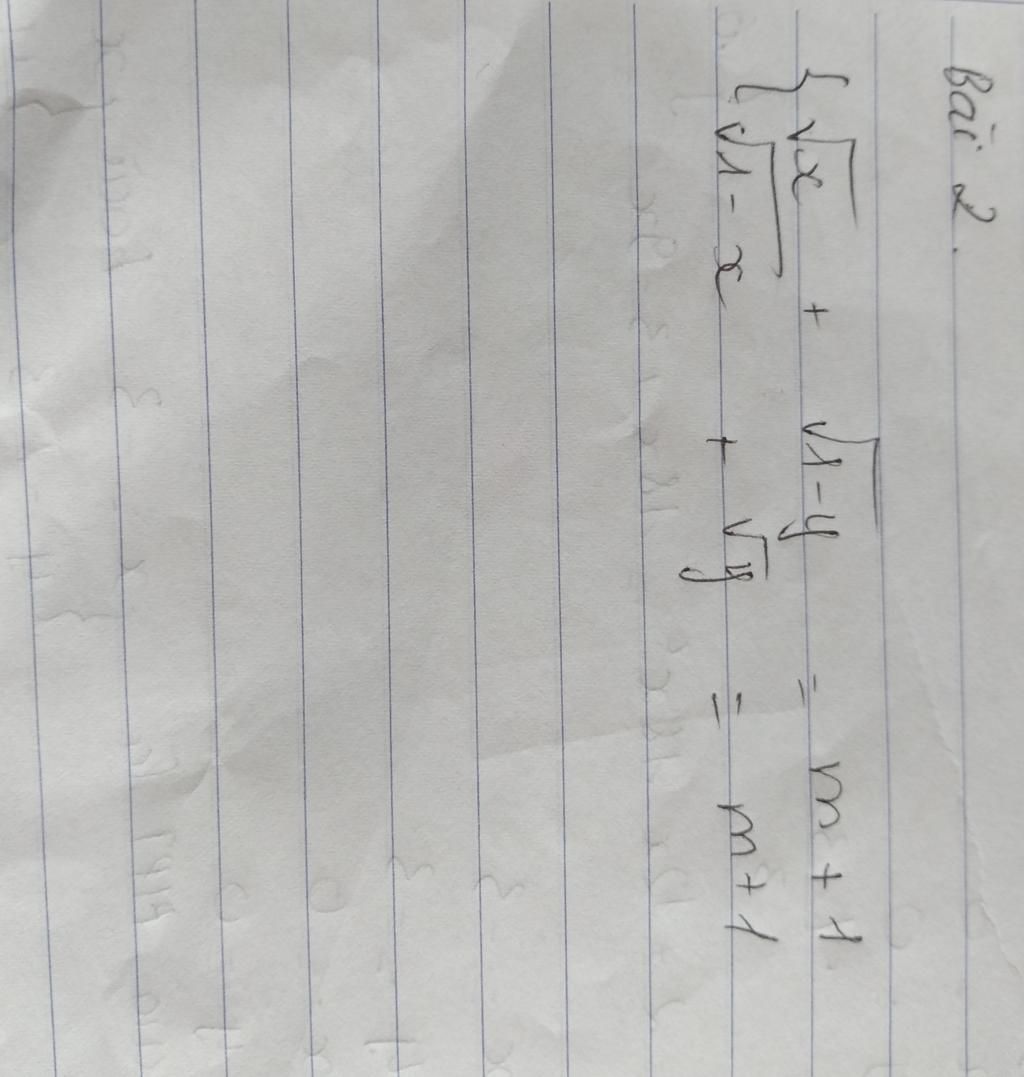 Bài 2.
{ √x + √1-y = m + 1
√1-x + √y = m + 1